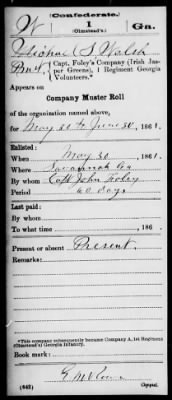 Confederate.
W 1 (Olmstead's) Ga.
Michael S Walsh
Pvt, Capt. Foley's Company (Irish Jasper Greens), 1 Regiment Georgia Volunteers.*
Appears on
Company Muster Roll
of the organization named above,
for May 30 to June 30, 1861.
Enlisted:
When May 30, 1861.
Where Savannah Ga
By whom Capt John Foley
Period 60 days
Last paid:
By whom
To what time , 186 .
Present or absent Present
Remarks:
*This company subsequently became Company A, 1st Regiment
(Olmstead's) Georgia Infantry.
Book mark:
(642) Copyist.